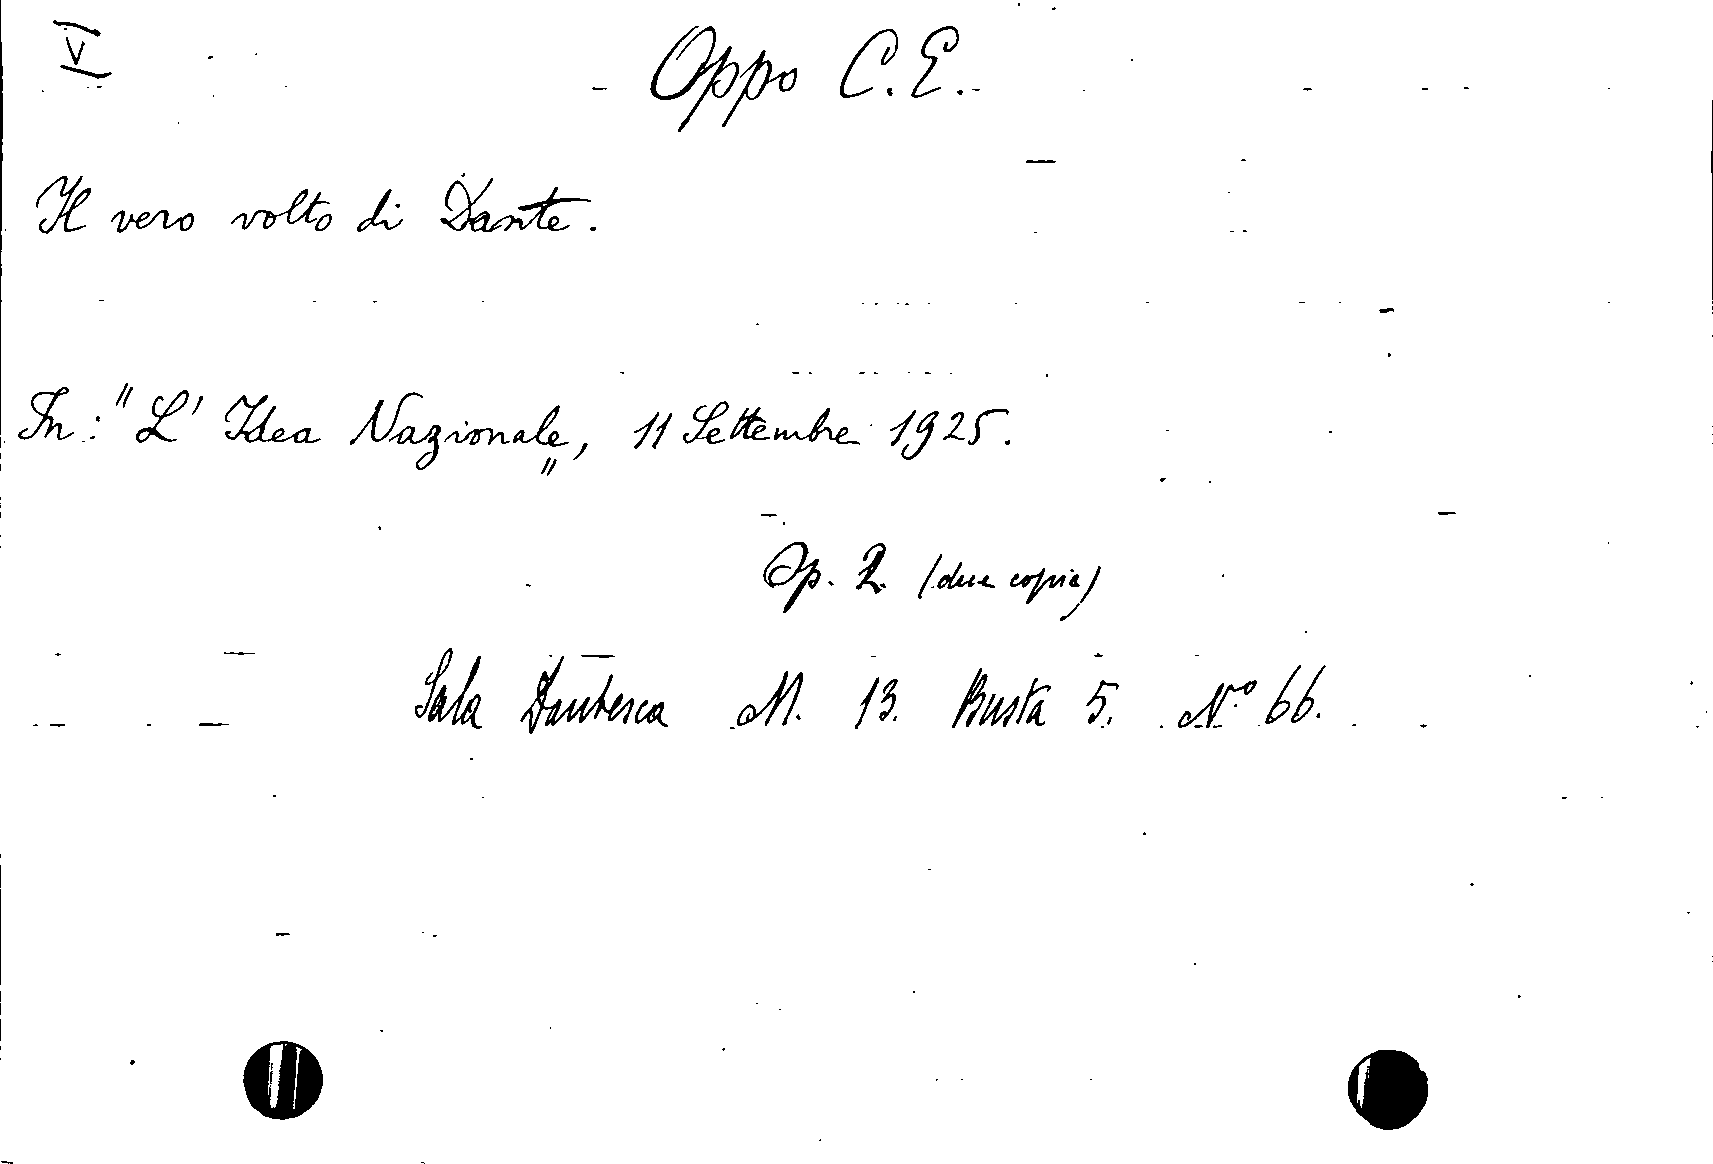 Oppo C. E.
Il vero volto di Dante.
In: "L' Idea Nazionale„, 11 Settembre 1925.
Op. 2 (due copie)
Sala Dantesca M. 13. Busta 5. N.° 66.